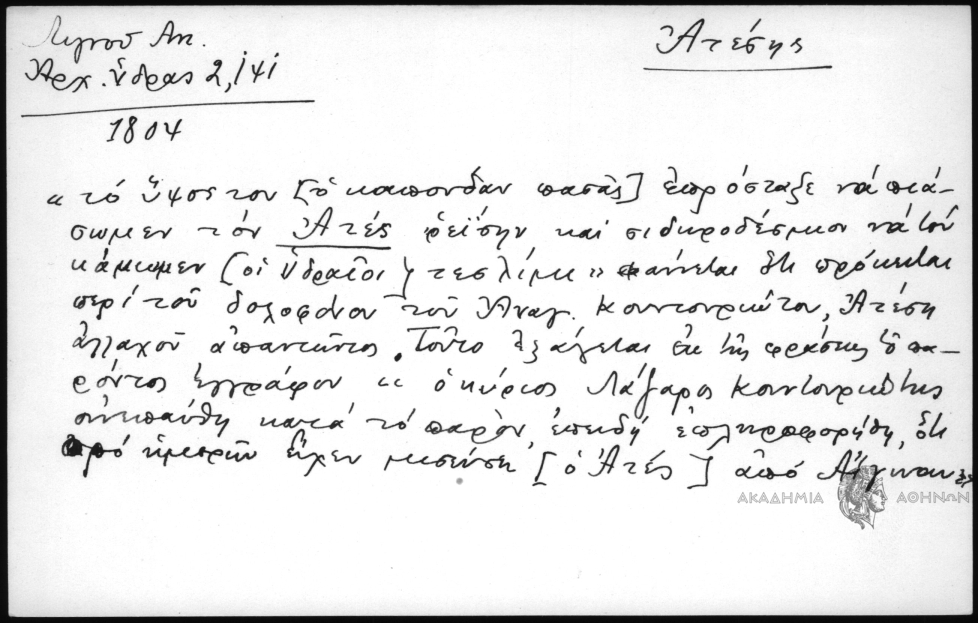 Λιγνού Αντ.
Ἀτέσης
Ἀρχ. Ὕδρας 2, ἰψἰ
1804
« τό ὕψος του [ὁ καπουδάν πασᾶς] ἐπρόσταξε νά πιά-
σωμεν τόν Ἀτές ρεΐσην καί σιδηροδέσμιον νά τόν
κάμωμεν [οἱ Ὑδραῖοι] τεσλίμι» φαίνεται ὅτι πρόκειται
περί τοῦ δολοφόνου τοῦ Ἀναγ. Κουντουριώτου, Ἀτέση
ἀλλαχοῦ ἀπαντῶντος. Τοῦτο ἐξάγεται ἐκ τῆς φράσεως τοῦ πα-
ρόντος ἐγγράφου «ὁ κύριος Λάζαρος Κουντουριώτης
κατά τό παρόν, ἐπειδή ἐπληροφορήθη, ὅτι
πρό ἡμερῶν εἶχεν μισεύσῃ [ὁ Ἀτές] ἀπό Αἴγιναν»
ΑΚΑΔΗΜΙΑ ΑΘΗΝΩΝ